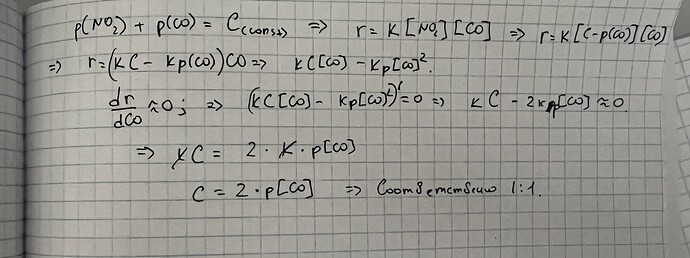 p(NO₂) + p(CO) = C(const) => r = K[NO₂][CO] => r = K[C-p(CO)][CO]
=> r = (KC - Kp(CO))CO => KC[CO] - Kp[CO]².
dr/dCO ≈ 0; => (KC[CO] - Kp[CO]²)' = 0 => KC - 2Kp[CO] ≈ 0.
=> KC = 2 · K · p[CO]
C = 2 · p[CO] => Соответственно 1:1.